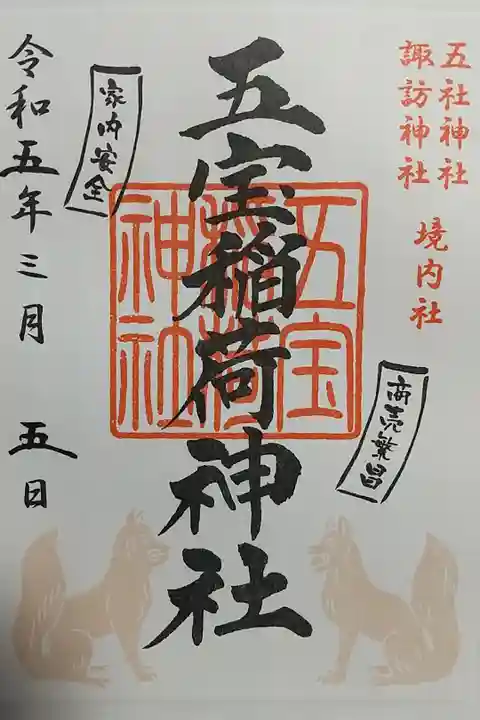 五社神社
諏訪神社 境内社
商売繁昌
五宝稲荷神社
五宝
稲荷
神社
家内安全
令和五年三月 五日